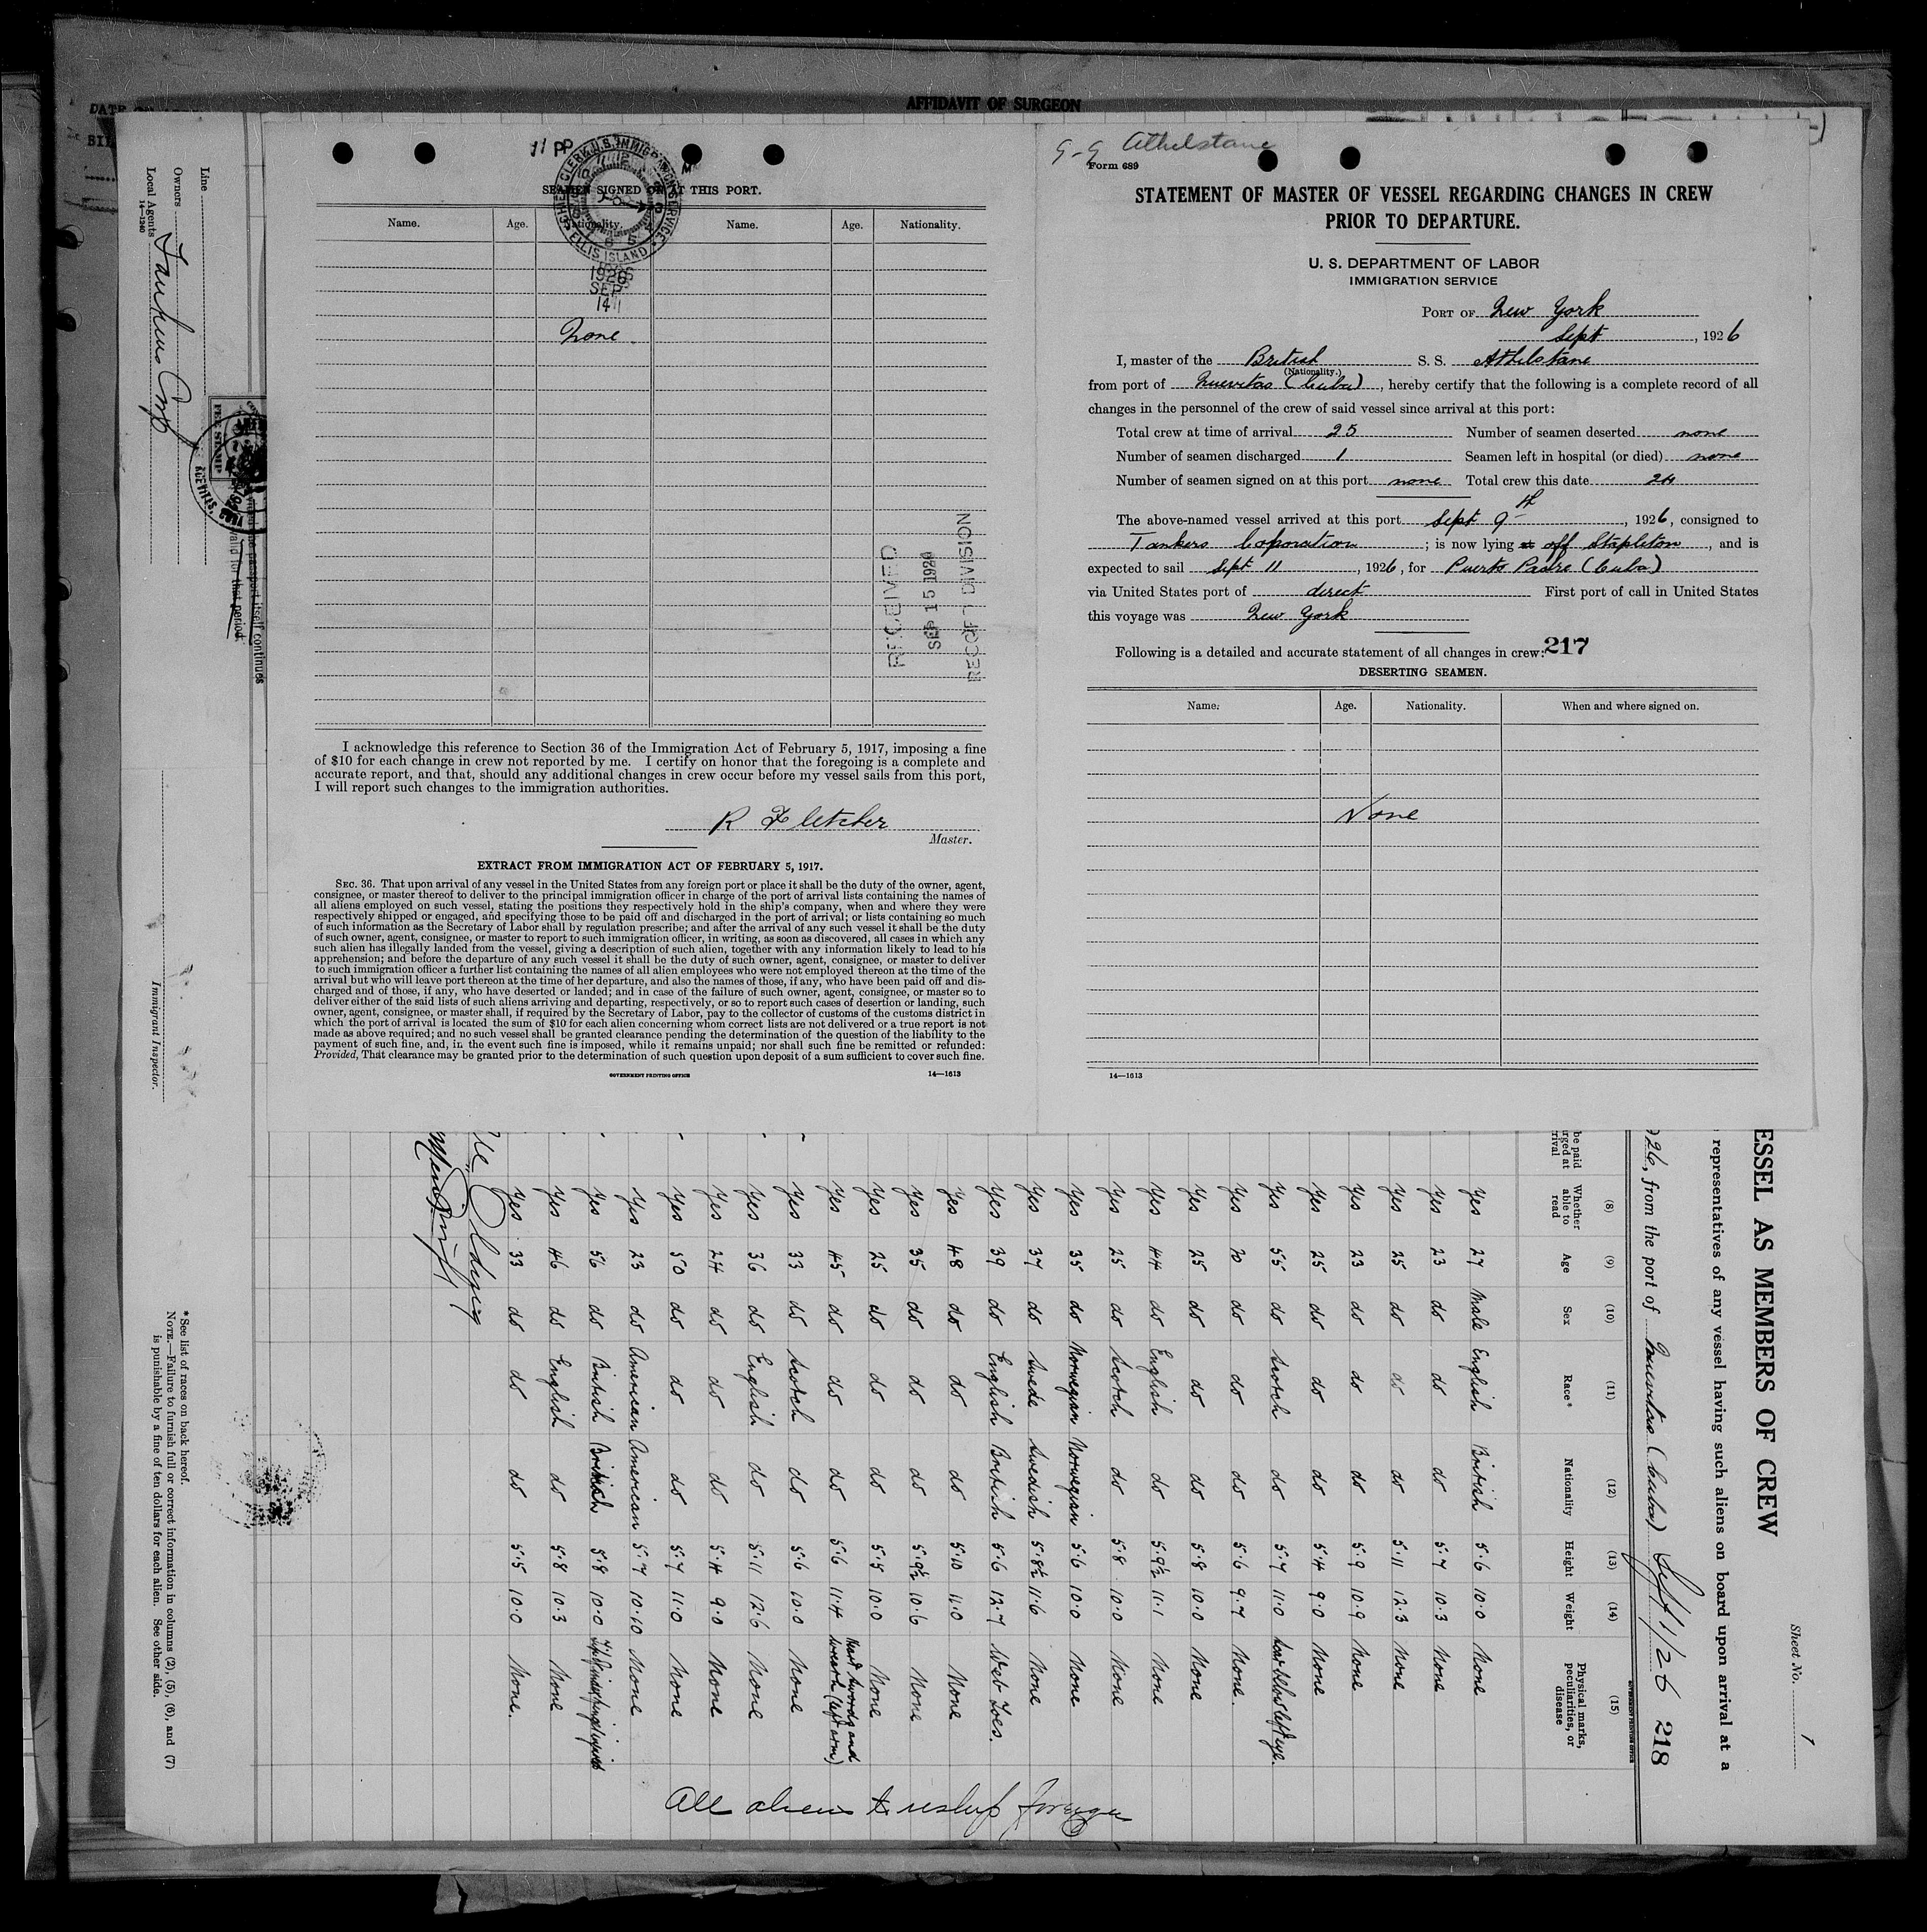 AFFIDAVIT OF SURGEON
11 PP
M
CLERK U.S. IMMIGRATION SERVICE
ELLIS ISLAND
1926
SEP
14
SEAMEN SIGNED ON AT THIS PORT.
Name. Age. Nationality. Name. Age. Nationality.
None
RECEIVED
SEP 15 1926
RECORD DIVISION
I acknowledge this reference to Section 36 of the Immigration Act of February 5, 1917, imposing a fine
of $10 for each change in crew not reported by me. I certify on honor that the foregoing is a complete and
accurate report, and that, should any additional changes in crew occur before my vessel sails from this port,
I will report such changes to the immigration authorities.
R Fletcher
Master.
EXTRACT FROM IMMIGRATION ACT OF FEBRUARY 5, 1917.
SEC. 36. That upon arrival of any vessel in the United States from any foreign port or place it shall be the duty of the owner, agent,
consignee, or master thereof to deliver to the principal immigration officer in charge of the port of arrival lists containing the names of
all aliens employed on such vessel, stating the positions they respectively hold in the ship's company, when and where they were
respectively shipped or engaged, and specifying those to be paid off and discharged in the port of arrival; or lists containing so much
of such information as the Secretary of Labor shall by regulation prescribe; and after the arrival of any such vessel it shall be the duty
of such owner, agent, consignee, or master to report to such immigration officer, in writing, as soon as discovered, all cases in which any
such alien has illegally landed from the vessel, giving a description of such alien, together with any information likely to lead to his
apprehension; and before the departure of any such vessel it shall be the duty of such owner, agent, consignee, or master to deliver
to such immigration officer a further list containing the names of all alien employees who were not employed thereon at the time of the
arrival but who will leave port thereon at the time of her departure, and also the names of those, if any, who have been paid off and dis-
charged and of those, if any, who have deserted or landed; and in case of the failure of such owner, agent, consignee, or master so to
deliver either of the said lists of such aliens arriving and departing, respectively, or so to report such cases of desertion or landing, such
owner, agent, consignee, or master shall, if required by the Secretary of Labor, pay to the collector of customs of the customs district in
which the port of arrival is located the sum of $10 for each alien concerning whom correct lists are not delivered or a true report is not
made as above required; and no such vessel shall be granted clearance pending the determination of the question of the liability to the
payment of such fine, and, in the event such fine is imposed, while it remains unpaid; nor shall such fine be remitted or refunded:
Provided, That clearance may be granted prior to the determination of such question upon deposit of a sum sufficient to cover such fine.
GOVERNMENT PRINTING OFFICE 14—1613
G-G Athelstane
Form 689
STATEMENT OF MASTER OF VESSEL REGARDING CHANGES IN CREW
PRIOR TO DEPARTURE.
U. S. DEPARTMENT OF LABOR
IMMIGRATION SERVICE
PORT OF New York
Sept, 1926
I, master of the British S. S. Athelstane
(Nationality.)
from port of Nuevitas (Cuba), hereby certify that the following is a complete record of all
changes in the personnel of the crew of said vessel since arrival at this port:
Total crew at time of arrival 25 Number of seamen deserted none
Number of seamen discharged 1 Seamen left in hospital (or died) none
Number of seamen signed on at this port none Total crew this date 24
The above-named vessel arrived at this port Sept 9th, 1926, consigned to
Tankers Coporation; is now lying at off Stapleton, and is
expected to sail Sept 11, 1926, for Puerto Padre (Cuba)
via United States port of direct First port of call in United States
this voyage was New York
Following is a detailed and accurate statement of all changes in crew: 217
DESERTING SEAMEN.
Name. Age. Nationality. When and where signed on.
None
14—1613
Sheet No. 1
ESSEL AS MEMBERS OF CREW
representatives of any vessel having such aliens on board upon arrival at a
926, from the port of Nuevitas (Cuba) Sept 1/26 218
(8) (9) (10) (11) (12) (13) (14) (15)
Whether able to read Age Sex Race* Nationality Height Weight Physical marks, peculiarities, or disease
Yes 27 Male English British 5.6 10.0 None
Yes 23 do do do 5.7 10.3 None
Yes 25 do do do 5.11 12.3 None
Yes 23 do do do 5.9 10.9 None
Yes 25 do do do 5.4 9.0 None
Yes 55 do Scotch do 5.7 11.0 left eye.
Yes 20 do do do 5.6 9.7 None.
Yes 25 do do do 5.8 10.0 None
Yes 44 do English do 5.9½ 11.1 None
Yes 25 do Scotch do 5.8 10.0 None
Yes 35 do Norwegian Norwegian 5.6 10.0 None
Yes 37 do Swede Swedish 5.8½ 11.6 None
Yes 39 do English British 5.6 12.7 Web Toes.
Yes 48 do do do 5.10 11.0 None
Yes 35 do do do 5.9½ 10.6 None
Yes 25 do do do 5.5 10.0 None
Yes 45 do do do 5.6 11.4 swords and wreath (left arm)
Yes 33 do Scotch do 5.6 10.0 None
Yes 36 do English do 5.11 12.6 None
Yes 24 do do do 5.4 9.0 None
Yes 50 do do do 5.7 11.0 None
Yes 23 do American American 5.7 10.10 None
Yes 56 do British British 5.8 10.0
Yes 46 do English do 5.8 10.3 None
Yes 33 do do do 5.5 10.0 None.
All aliens to reship foreign
* See list of races on back hereof.
NOTE.—Failure to furnish full or correct information in columns (2), (5), (6), and (7)
is punishable by a fine of ten dollars for each alien. See other side.
Line
Owners
Local Agents Tankers Corp
14—1240
Immigrant Inspector.
FEE STAMP
the passport itself continues
valid for that period.